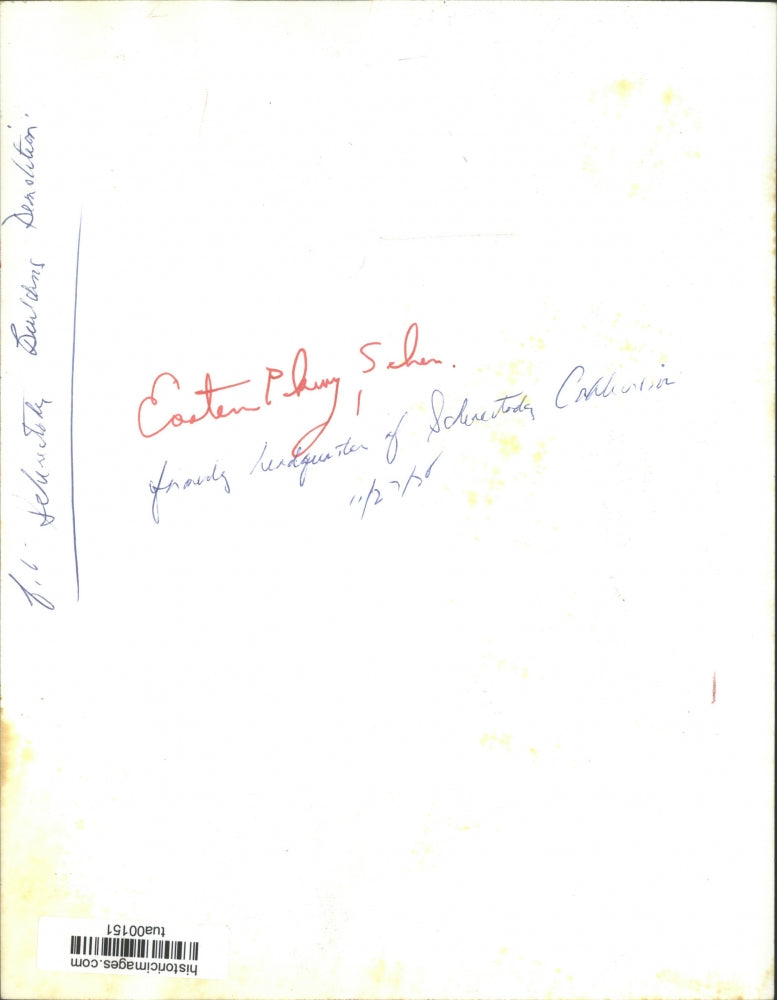 Schenectady Building Demolition
Eastern Pkwy, Schen.
formerly headquarters of Schenectady
11/27/
historicimages.com
tua00151